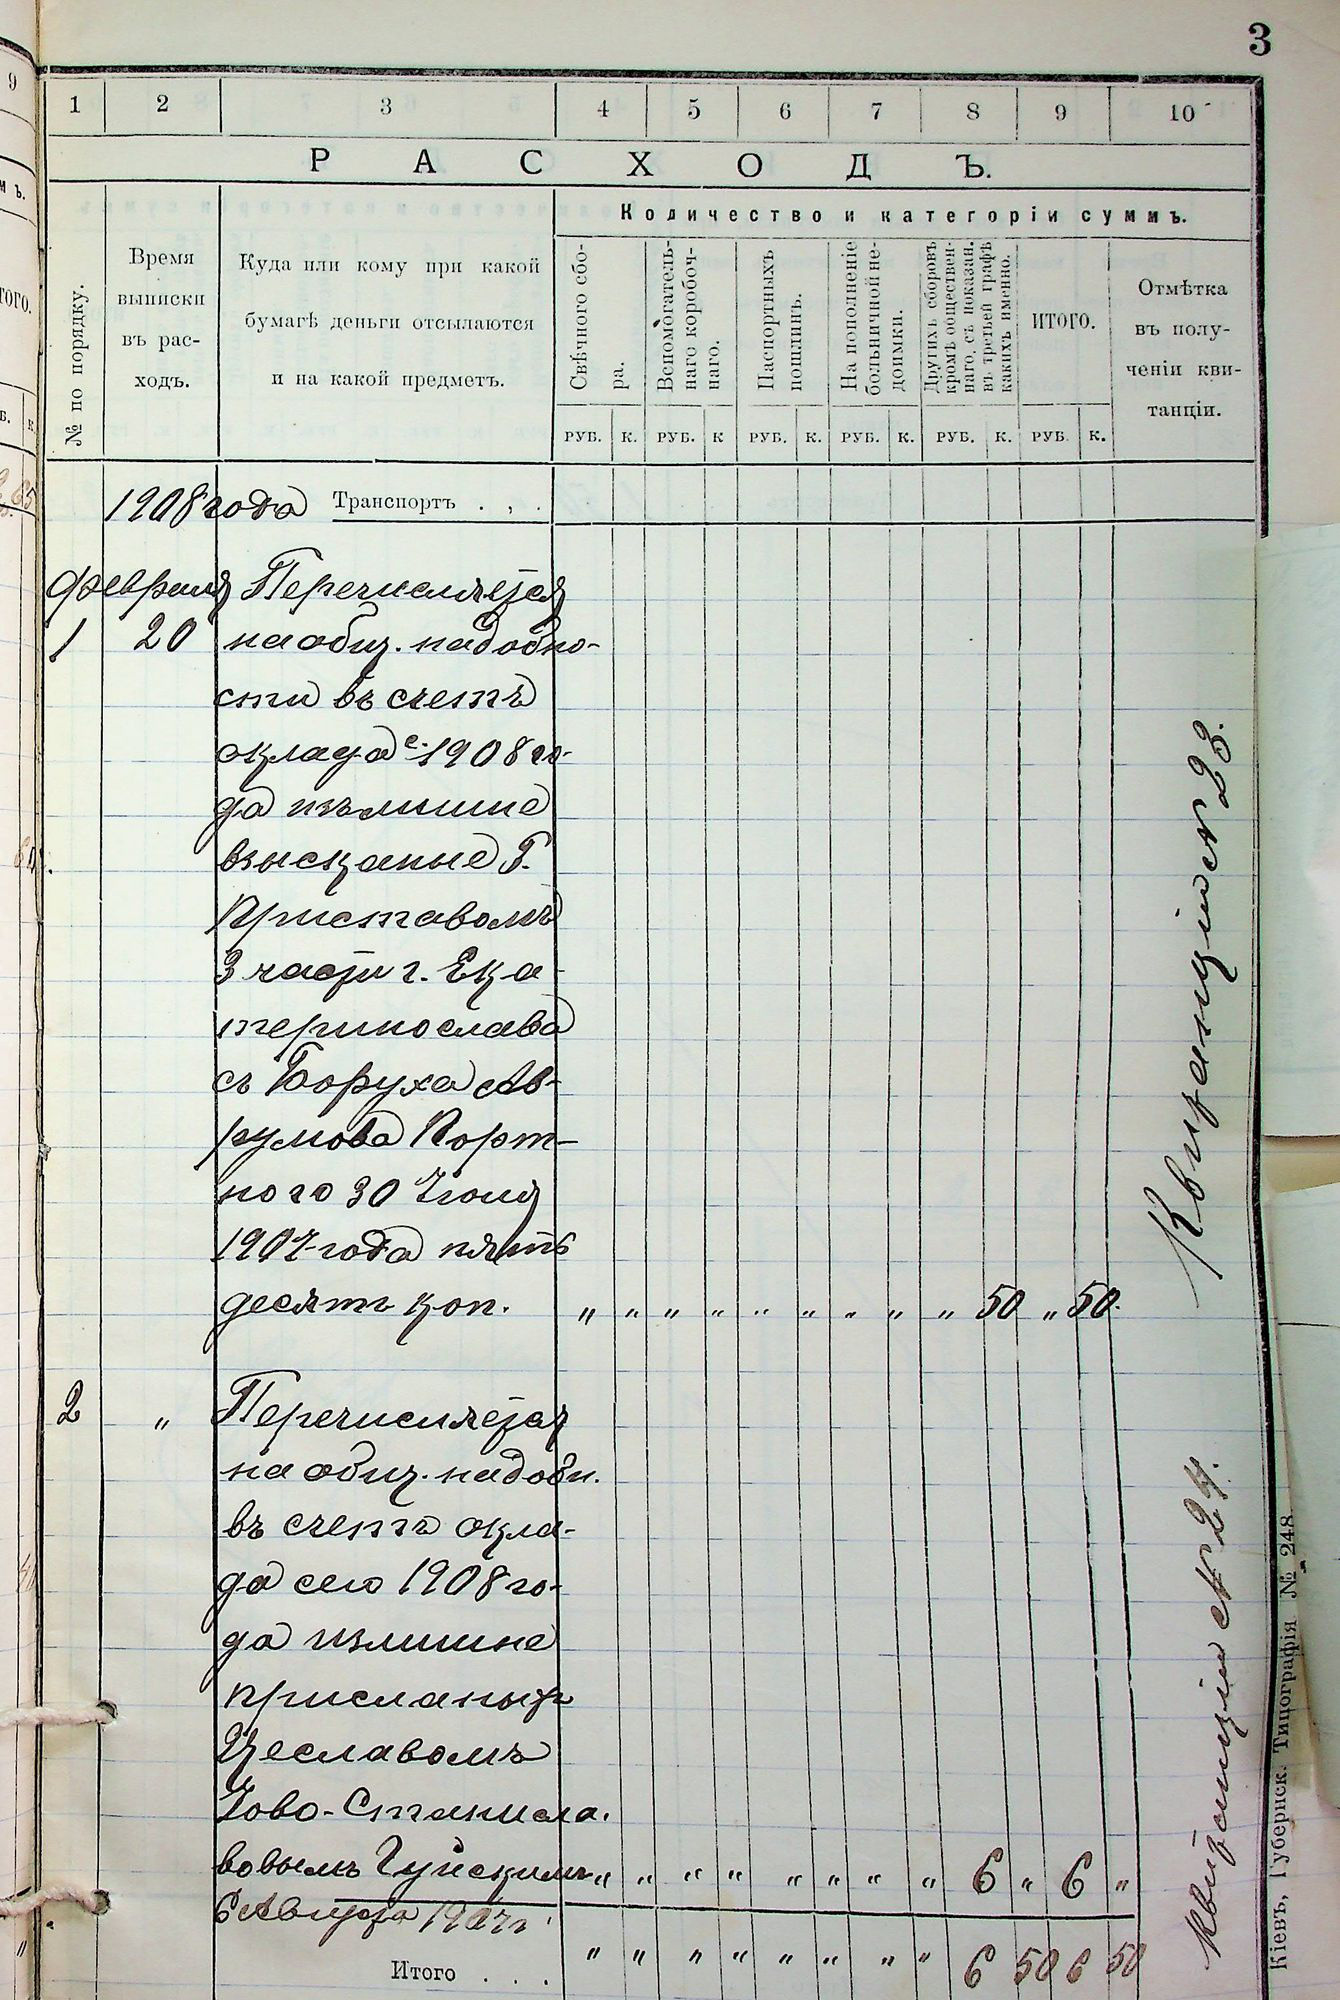 3
1 2 3 4 5 6 7 8 9 10
РАСХОДЪ.
Количество и категоріи суммъ.
№ по порядку.
Время
выписки
въ рас-
ходъ.
Куда или кому при какой
бумагѣ деньги отсылаются
и на какой предметъ.
Свѣчного сбо-
ра.
Вспомогатель-
наго коробоч-
наго.
Паспортныхъ
пошлинъ.
На пополненіе
больничной не-
доимки.
Другихъ сборовъ
кромѣ обществен-
наго, съ показан.
въ третьей графѣ
какихъ именно.
ИТОГО.
Отмѣтка
въ полу-
ченіи кви-
танціи.
РУБ. К. РУБ. К РУБ. К. РУБ. К. РУБ. К. РУБ. К.
1908 года Транспортъ . , .
Февраля Перечисляется
1 20 на общ. надобно-
сти въ счетъ
оклада с. 1908 го-
да излишне
взысканые Г.
Приставомъ
3 части г. Ека-
теринослава
съ Боруха Ав-
румова Порт-
ного 30 Іюля
1907 года пять
десять коп. " " " " " " " " " 50 " 50.
Квитанція № 23.
2 " Перечисляется
на общ. надобн.
въ счетъ окла-
да сего 1908 го-
да излишне
присланых
Цеславомъ
Іово-Станисла.
вовымъ Гуйскимъ " " " " " " " " 6 " 6 "
6 Августа 1907 г.
Итого . . . " " " " " " " " 6 50 6 50
Квитанція № 24.
Кіевъ, Губернск. Типографія № 248